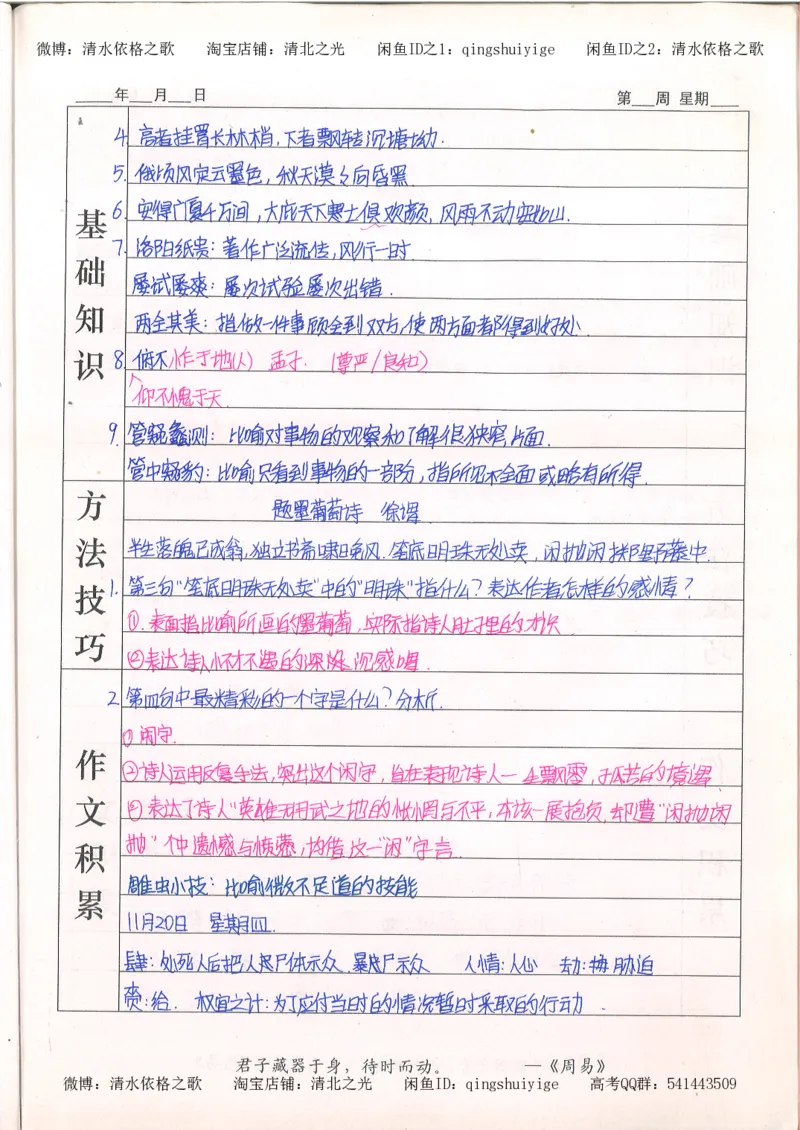 微博：清水依格之歌 淘宝店铺：清北之光 闲鱼ID之1：qingshuiyige 闲鱼ID之2：清水依格之歌
年 月 日 第 周 星期
基础知识
4. 高者挂罥长林梢，下者飘转沉塘坳．
5. 俄顷风定云墨色，秋天漠漠向昏黑．
6. 安得广厦千万间，大庇天下寒士俱欢颜，风雨不动安如山．
7. 洛阳纸贵：著作广泛流传，风行一时．
屡试屡爽：屡次试验屡次出错．
两全其美：指做一件事顾全到双方，使两方面都得到好处．
8. 俯不怍于地(人) 孟子． （尊严/良知）
仰不愧于天．
9. 管窥蠡测：比喻对事物的观察和了解很狭窄，片面．
管中窥豹：比喻只看到事物的一部分，指所见不全面或略有所得．
方法技巧
题墨葡萄诗 徐渭
半生落魄已成翁，独立书斋啸晚风．笔底明珠无处卖，闲抛闲掷野藤中．
1. 第三句“笔底明珠无处卖”中的“明珠”指什么？表达作者怎样的感情？
①．表面指比喻所画的墨葡萄，实际指诗人肚子里的才识
②表达诗人怀才不遇的深沉感喟．
作文积累
2. 第四句中最精彩的一个字是什么？分析．
① 闲字．
②诗人运用反复手法，突出这个闲字，旨在表现诗人一生飘零，孤苦的境遇．
③表达了诗人“英雄无用武之地的惆怅与不平，本该一展抱负，却遭“闲抛闲
抛”个中遗憾与愤懑，均借这一“闲”字言．
雕虫小技：比喻微不足道的技能
11月20日 星期四．
肆：处死人后把人尸体示众．暴尸示众 人情：人心 劫：胁迫
赍：给． 权宜之计：为了应付当时的情况暂时采取的行动．
君子藏器于身，待时而动。 —《周易》
微博：清水依格之歌 淘宝店铺：清北之光 闲鱼ID：qingshuiyige 高考QQ群：541443509